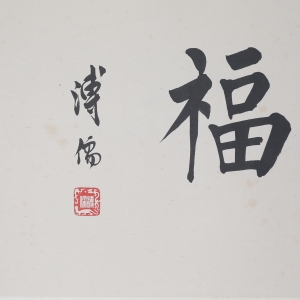 福
溥儒